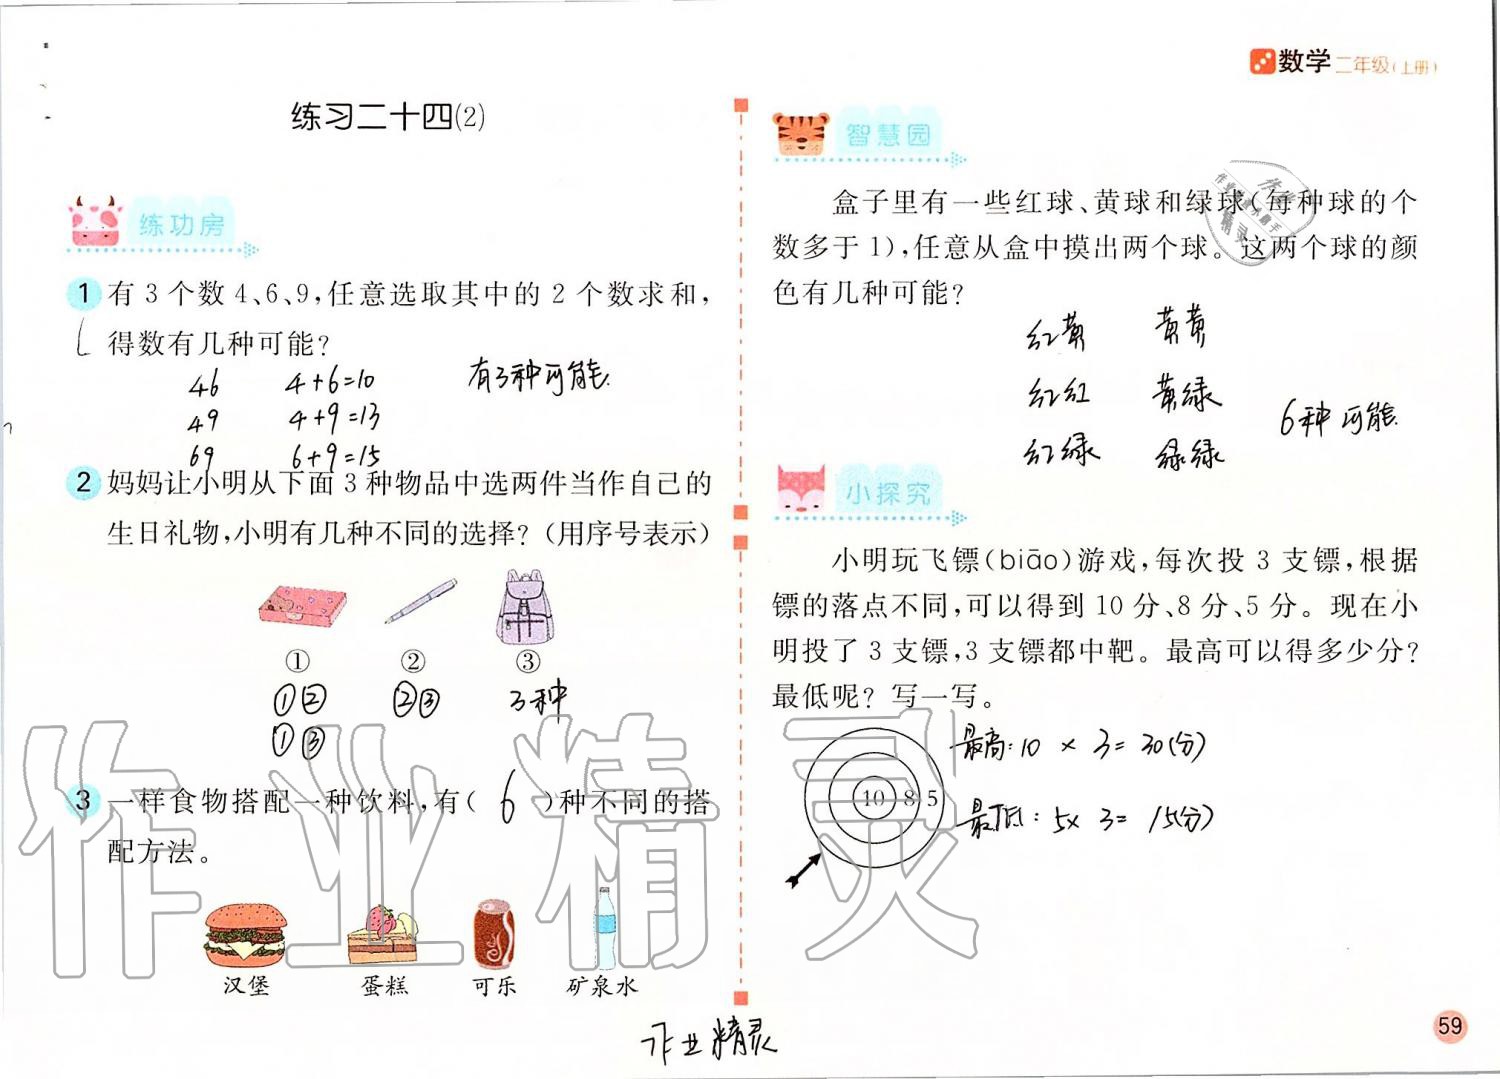 数学二年级(上册)
练习二十四(2)
练功房
1 有3个数4、6、9,任意选取其中的2个数求和,
得数有几种可能?
46 4+6=10 有3种可能.
49 4+9=13
69 6+9=15
2 妈妈让小明从下面3种物品中选两件当作自己的
生日礼物,小明有几种不同的选择?(用序号表示)
① ② ③
①② ②③ 3种
①③
3 一样食物搭配一种饮料,有( 6 )种不同的搭
配方法。
汉堡 蛋糕 可乐 矿泉水
智慧园
盒子里有一些红球、黄球和绿球(每种球的个
数多于1),任意从盒中摸出两个球。这两个球的颜
色有几种可能?
红黄 黄黄
红红 黄绿 6种可能.
红绿 绿绿
小探究
小明玩飞镖(biāo)游戏,每次投3支镖,根据
镖的落点不同,可以得到10分、8分、5分。现在小
明投了3支镖,3支镖都中靶。最高可以得多少分?
最低呢?写一写。
最高:10 × 3=30(分)
10 8 5
最低:5× 3= 15(分)
作业精灵
作业精灵
59